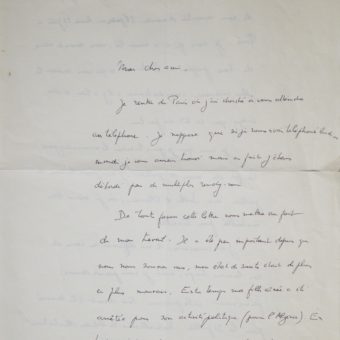 Mon cher ami.
Je rentre de Paris où j'ai cherché à vous atteindre
au téléphone. Je suppose que si je vous avais téléphoné
je vous aurais trouvé mais en fait j'étais
débordé par de multiples
De toute façon cette lettre vous mettra au fait
de mon travail. Il a été peu important depuis que
nous nous sommes vus, mon état de santé étant de plus
en plus mauvais. Entre temps ma fille aînée a été
arrêtée pour son activité politique (pour l'Algérie) En